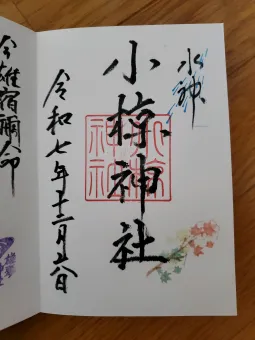 水神
小椋神社
小椋神社
令和七年十二月
今雄宿禰命